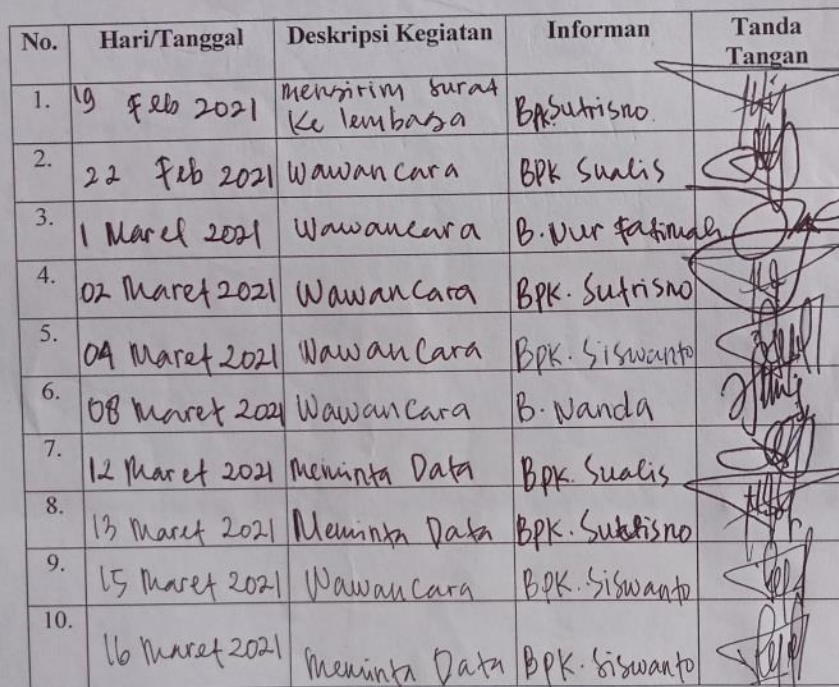 No. Hari/Tanggal Deskripsi Kegiatan Informan Tanda
Tangan
1. 19 Feb 2021 mengirim surat
Ke lembaga BPk. Sutrisno.
2. 22 Feb 2021 Wawancara BPK Sualis
3. 1 Maret 2021 Wawancara B. Nur Fatimah
4. 02 Maret 2021 Wawancara BPK. Sutrisno
5. 04 Maret 2021 Wawancara BPK. Siswanto
6. 08 Maret 2021 Wawancara B. Nanda
7. 12 Maret 2021 Meminta Data BPK. Sualis
8. 13 Maret 2021 Meminta Data BPK. Sutrisno
9. 15 Maret 2021 Wawancara BPK. Siswanto
10. 16 Maret 2021 Meminta Data BPK. Siswanto